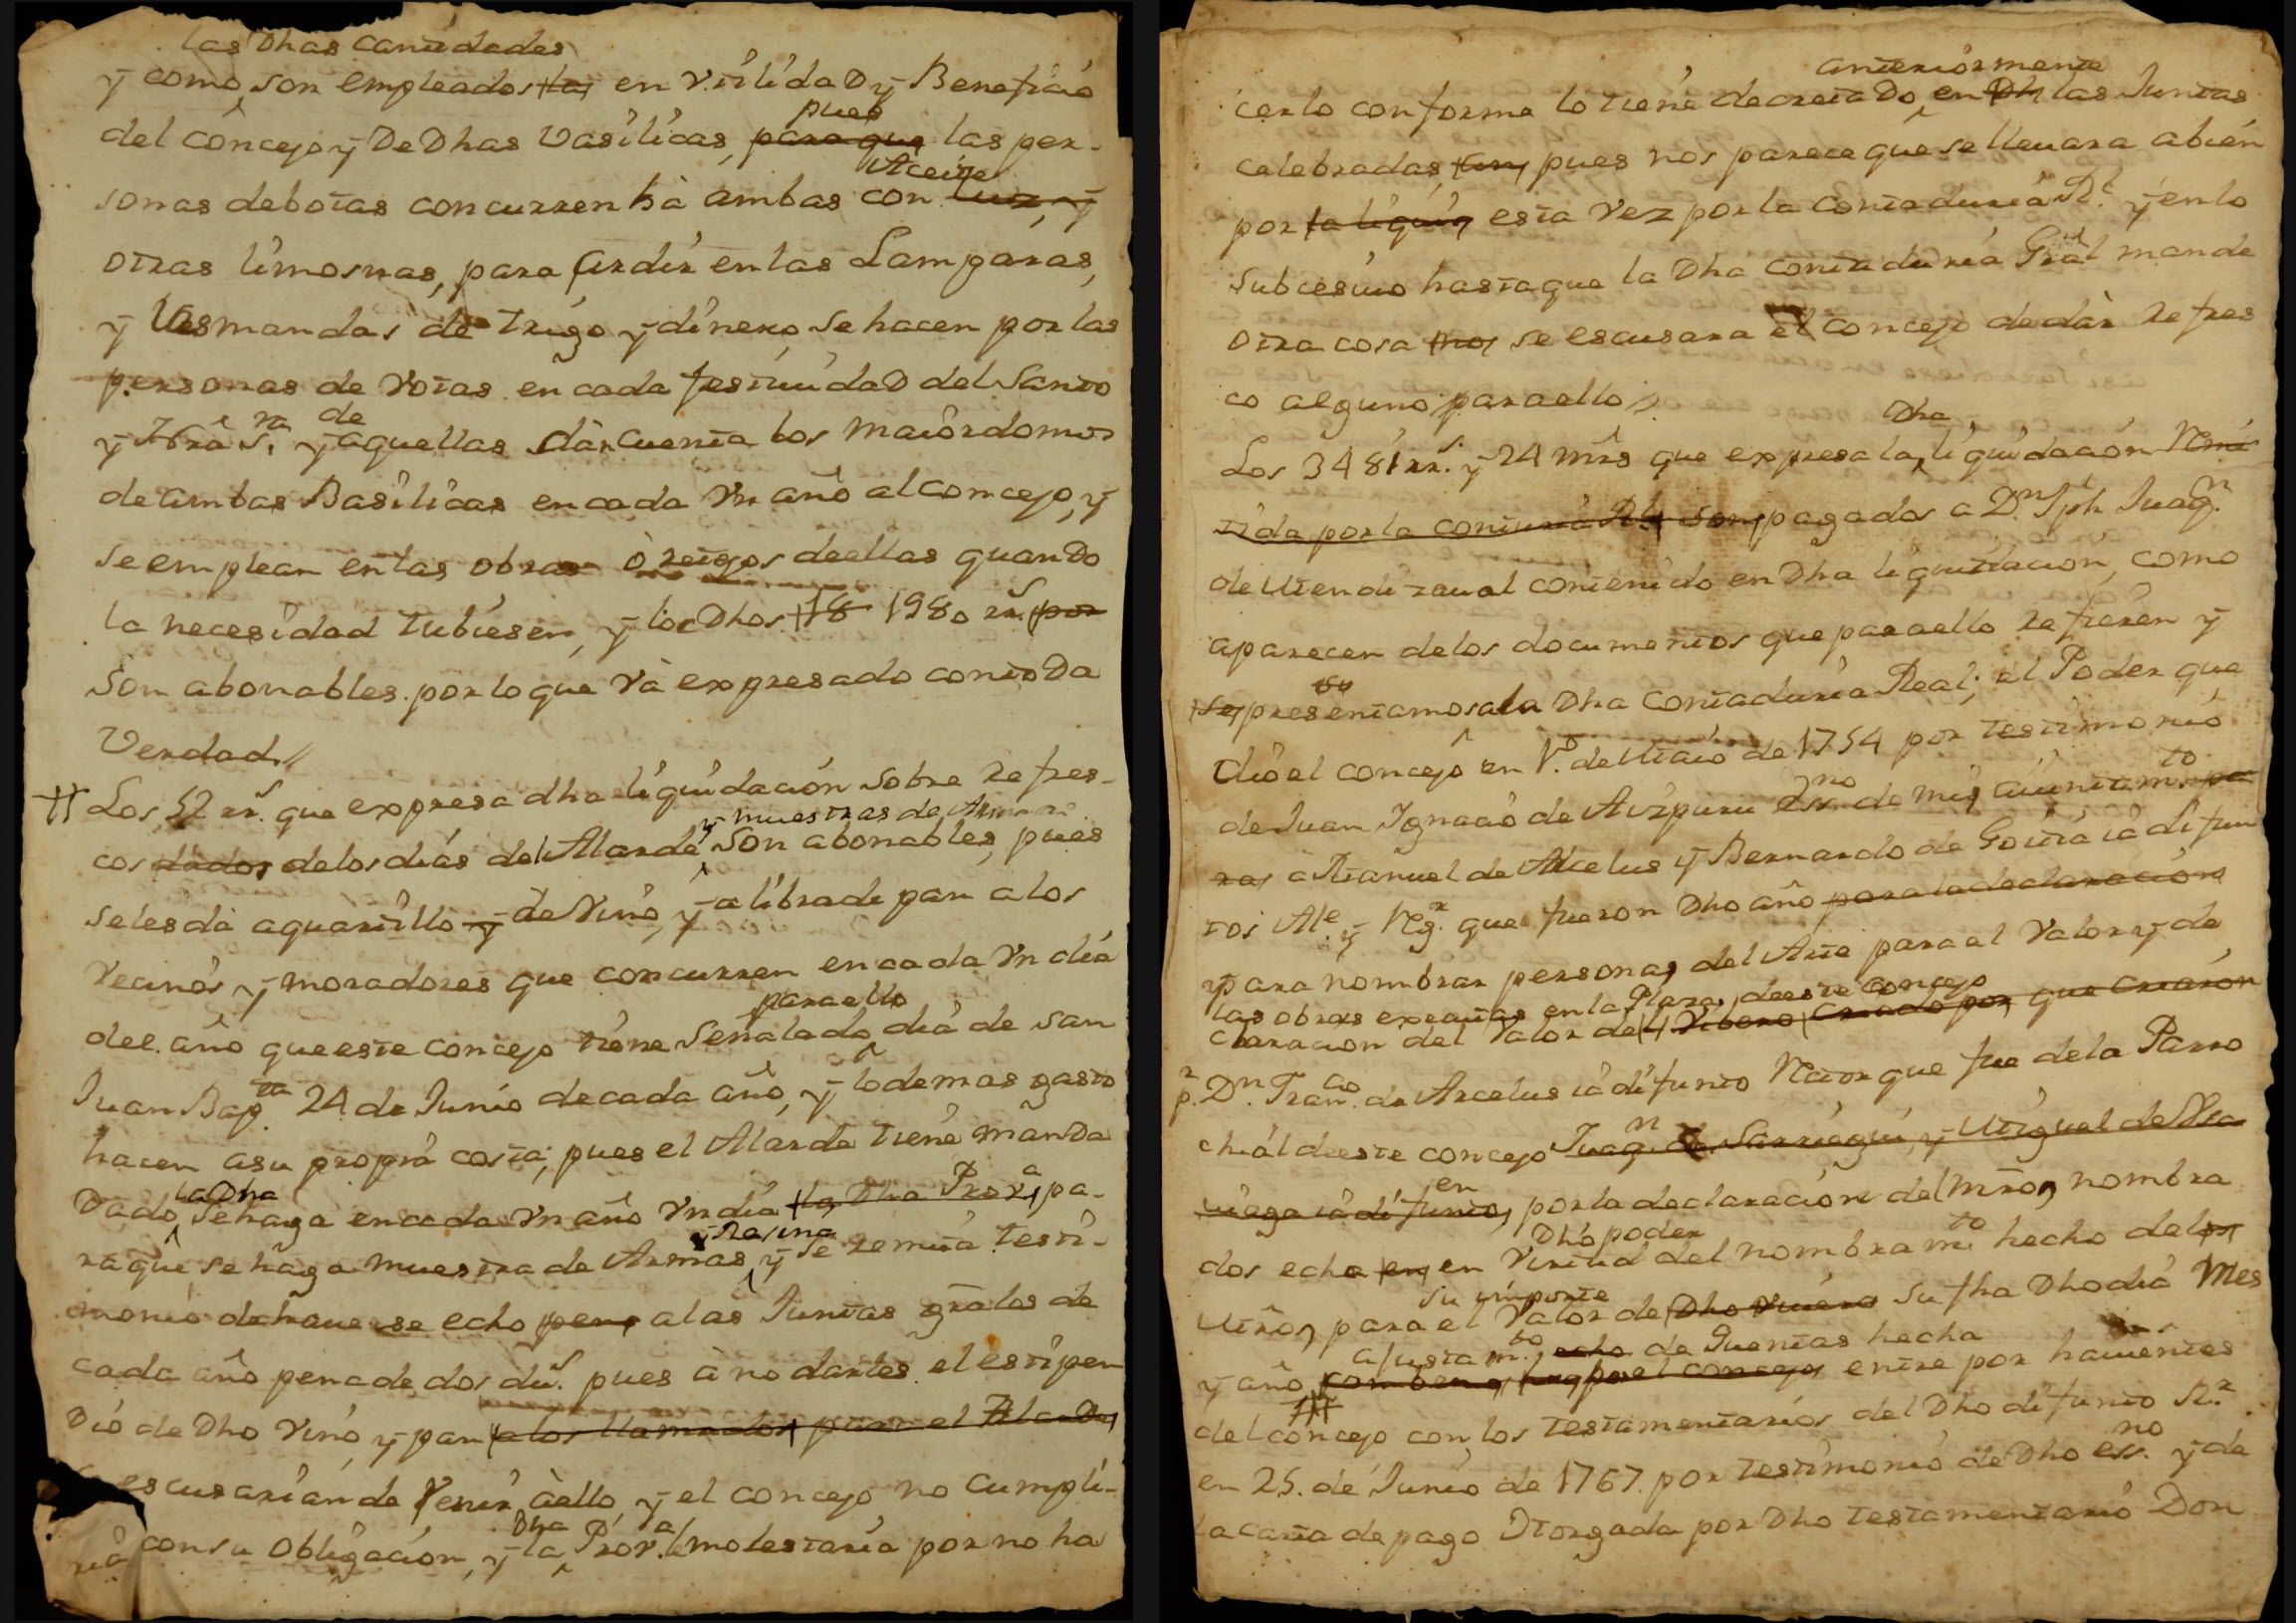 las Dhas cantidades
y como son empleados la, en Vtilidad y Beneficio
pues
del concejo y De Dhas Vasilicas, para que las per-
Aceite
sonas debotas concurren hà ambas con luz, y
otras limosnas, para Ardir en las Lamparas,
y las mandas de trigo y dinero, se hacen por las
personas de Votas en cada festiuidad del Santo
de
y Nrâ S.ra y aquellas dàn cuenta los maiordomos
de ambas Basilicas en cada Vn año al concejo, y
se emplean en las obras ò reigos de ellas quando
la necesidad tubiesen, y los Dhos 18 1980 rs. por
Son abonables por lo que Và expresado con toda
Verdad //
Los 52 rs. que expresa dha liquidación sobre refres-
y muestras de Armas
cos dados de los diás del Alarde Son abonables, pues
seles dà aquartillo y de Vino, y a libra de pan a los
Vecinos y moradores que concurren en cada Vn diá
para ello
del año que este concejo tiene Señalado diá de san
Juan Bap.ta 24 de Junio de cada año, y lo demas gasto
hacen asu propiá costa; pues el Alarde tiene manda
la Dha
Dado, Se haga en cada Vn año Vn diá la Dha Prov.a, pa-
y Resina
ra que se haga muestra de Armas, y se remita testi-
monio de haue se echo pena a las Juntas grales de
cada año pena de dos du.s pues à no darles el estipen
Dio de Dho Vino, y pan a los llamados para el Alarde
escusarian de Venir àello, y el concejo no Cumpli-
Dha
rià con su obligación, y la Prov.a molestaria por no ha
anteriormente
cerlo conforme lo tiene decretado, en Dh las Juntas
celebradas, pues nos parece que se lleuara abien
por la liquin esta Vez por la contaduria Rl. y en lo
Subcesiuo hasta que la Dha contaduria Gral mande
otra cosa no, se escusara el concejo de dàr refres
co alguno para ello //.
Dha
Los 3481 rr.s y 24 mrs que expresa la liquidación Remi
tida por la conturia Rl. son pagados a D.n Jph Juaq.n
de Mendizaual contenido en Dha liquidacion, como
aparecen de los documentos que para ello refieren y
se presentamos a la Dha Contaduria Real; el Poder que
dio el concejo en 1.º de Maio de 1754 por testimonio
de Juan Ignacio de Aizpuru Ess.no de mis aiuntam.to pa
ras à Manuel de Alcelus y Bernardo de Goitia ià difun
tos Al.e y Reg.r que fueron Dho año para la declaración
y para nombrar personas del Arte para el Valor y de
las obras executas en la Plaza, de este concejo
claracion del Valor del Vibero Criado por que crearon
p.r D.n Fran.co de Arcelus ià difunto Retor que fue dela Parro
chiál de este concejo Juaq.n de Sarriegui, y Miguel de
en
ià difunto, por la declaración del Mro, nombra
Dho poder
dos echa en en Virtud del nombram.to hecho de los
su importe
Mros, para el Valor de Dho Viuero su fha Dho diá Mes
ajustam.to, echo de Quentas hecha
y año, por el concejo, entre por hauientes
del concejo con los testamentarios del Dho difunto R.r
en 25. de Junio de 1767. por testimonio de Dho ess.no y de
la carta de pago Otorgada por Dho testamentario Don